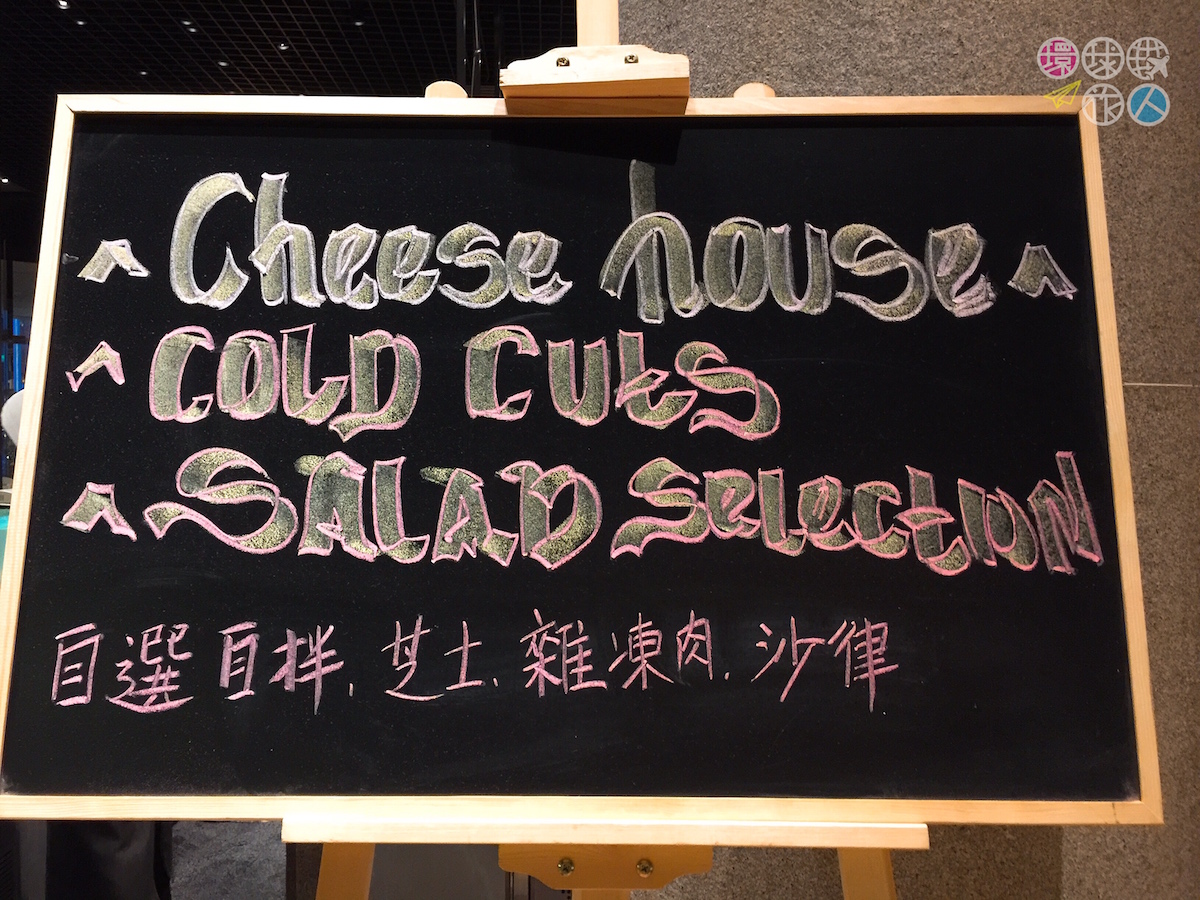 環球世
旅人
^ Cheese house ^
^ COLD CUtS
^ SALAD SelectION
自選自拌, 芝士, 雜凍肉, 沙律